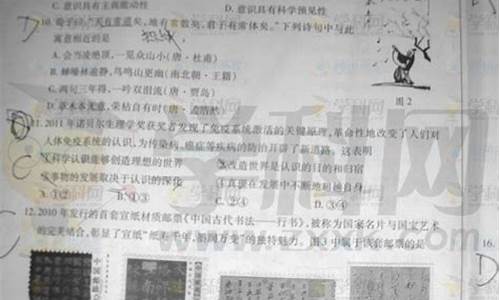 C. 意识具有主观能动性 D. 意识具有科学预见性
D
10. 荀子曰:“天有常道矣,地有常数矣,君子有常体矣。”下列诗句中与此
寓意相近的是
A. 会当凌绝顶,一览众山小(唐·杜甫)
B. 蝉噪林逾静,鸟鸣山更幽(南北朝·王籍)
C. 两句三年得,一吟双泪流(唐·贾岛)
D. 草木本无意,荣枯自有时(唐·孟浩然)
图2
11. 2011年诺贝尔生理学奖获奖者发现了免疫系统激活的关键原理,革命性地改变了人们对
人体免疫系统的认识,为传染病、癌症等疾病的防治开辟了新道路。这表明
C
①科学认识能够创造理想的世界 ②改造世界是认识的目的和归宿
③事物的发展取决于认识的深化 ④真理在发展中不断地超越自身
A. ①② B. ①③ C. ②④ D. ③④
C
12. 2010年发行的首套宣纸材质邮票《中国古代书法——行书》,被称为国家名片与国宝艺术
的完美结合,彰显了宣纸“纸寿千年,墨润万变”的独特魅力。图3中属于该套邮票的是
16.
D
中国邮政
学科网